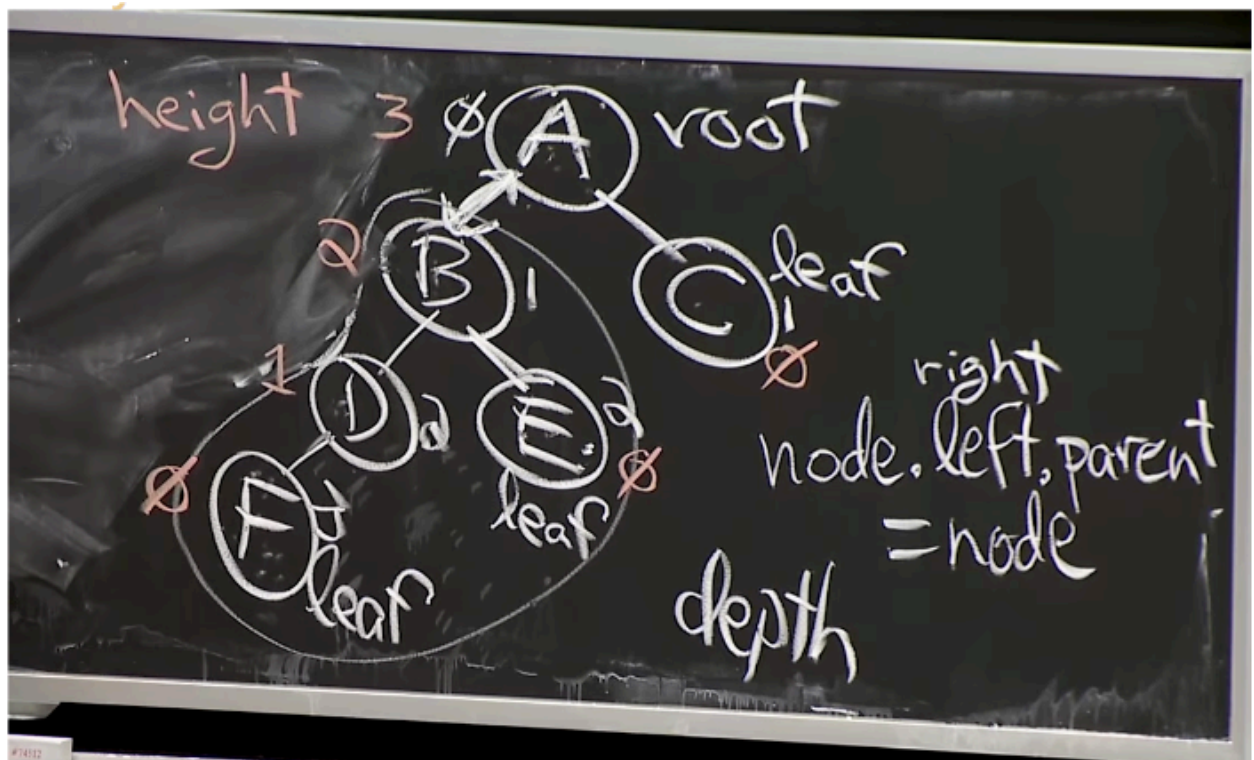 height 3 ø A root
2 B 1
C leaf
1
ø
1 D 2
E 2
ø
leaf
ø F 3
leaf
right
node.left.parent
= node
depth
#74512